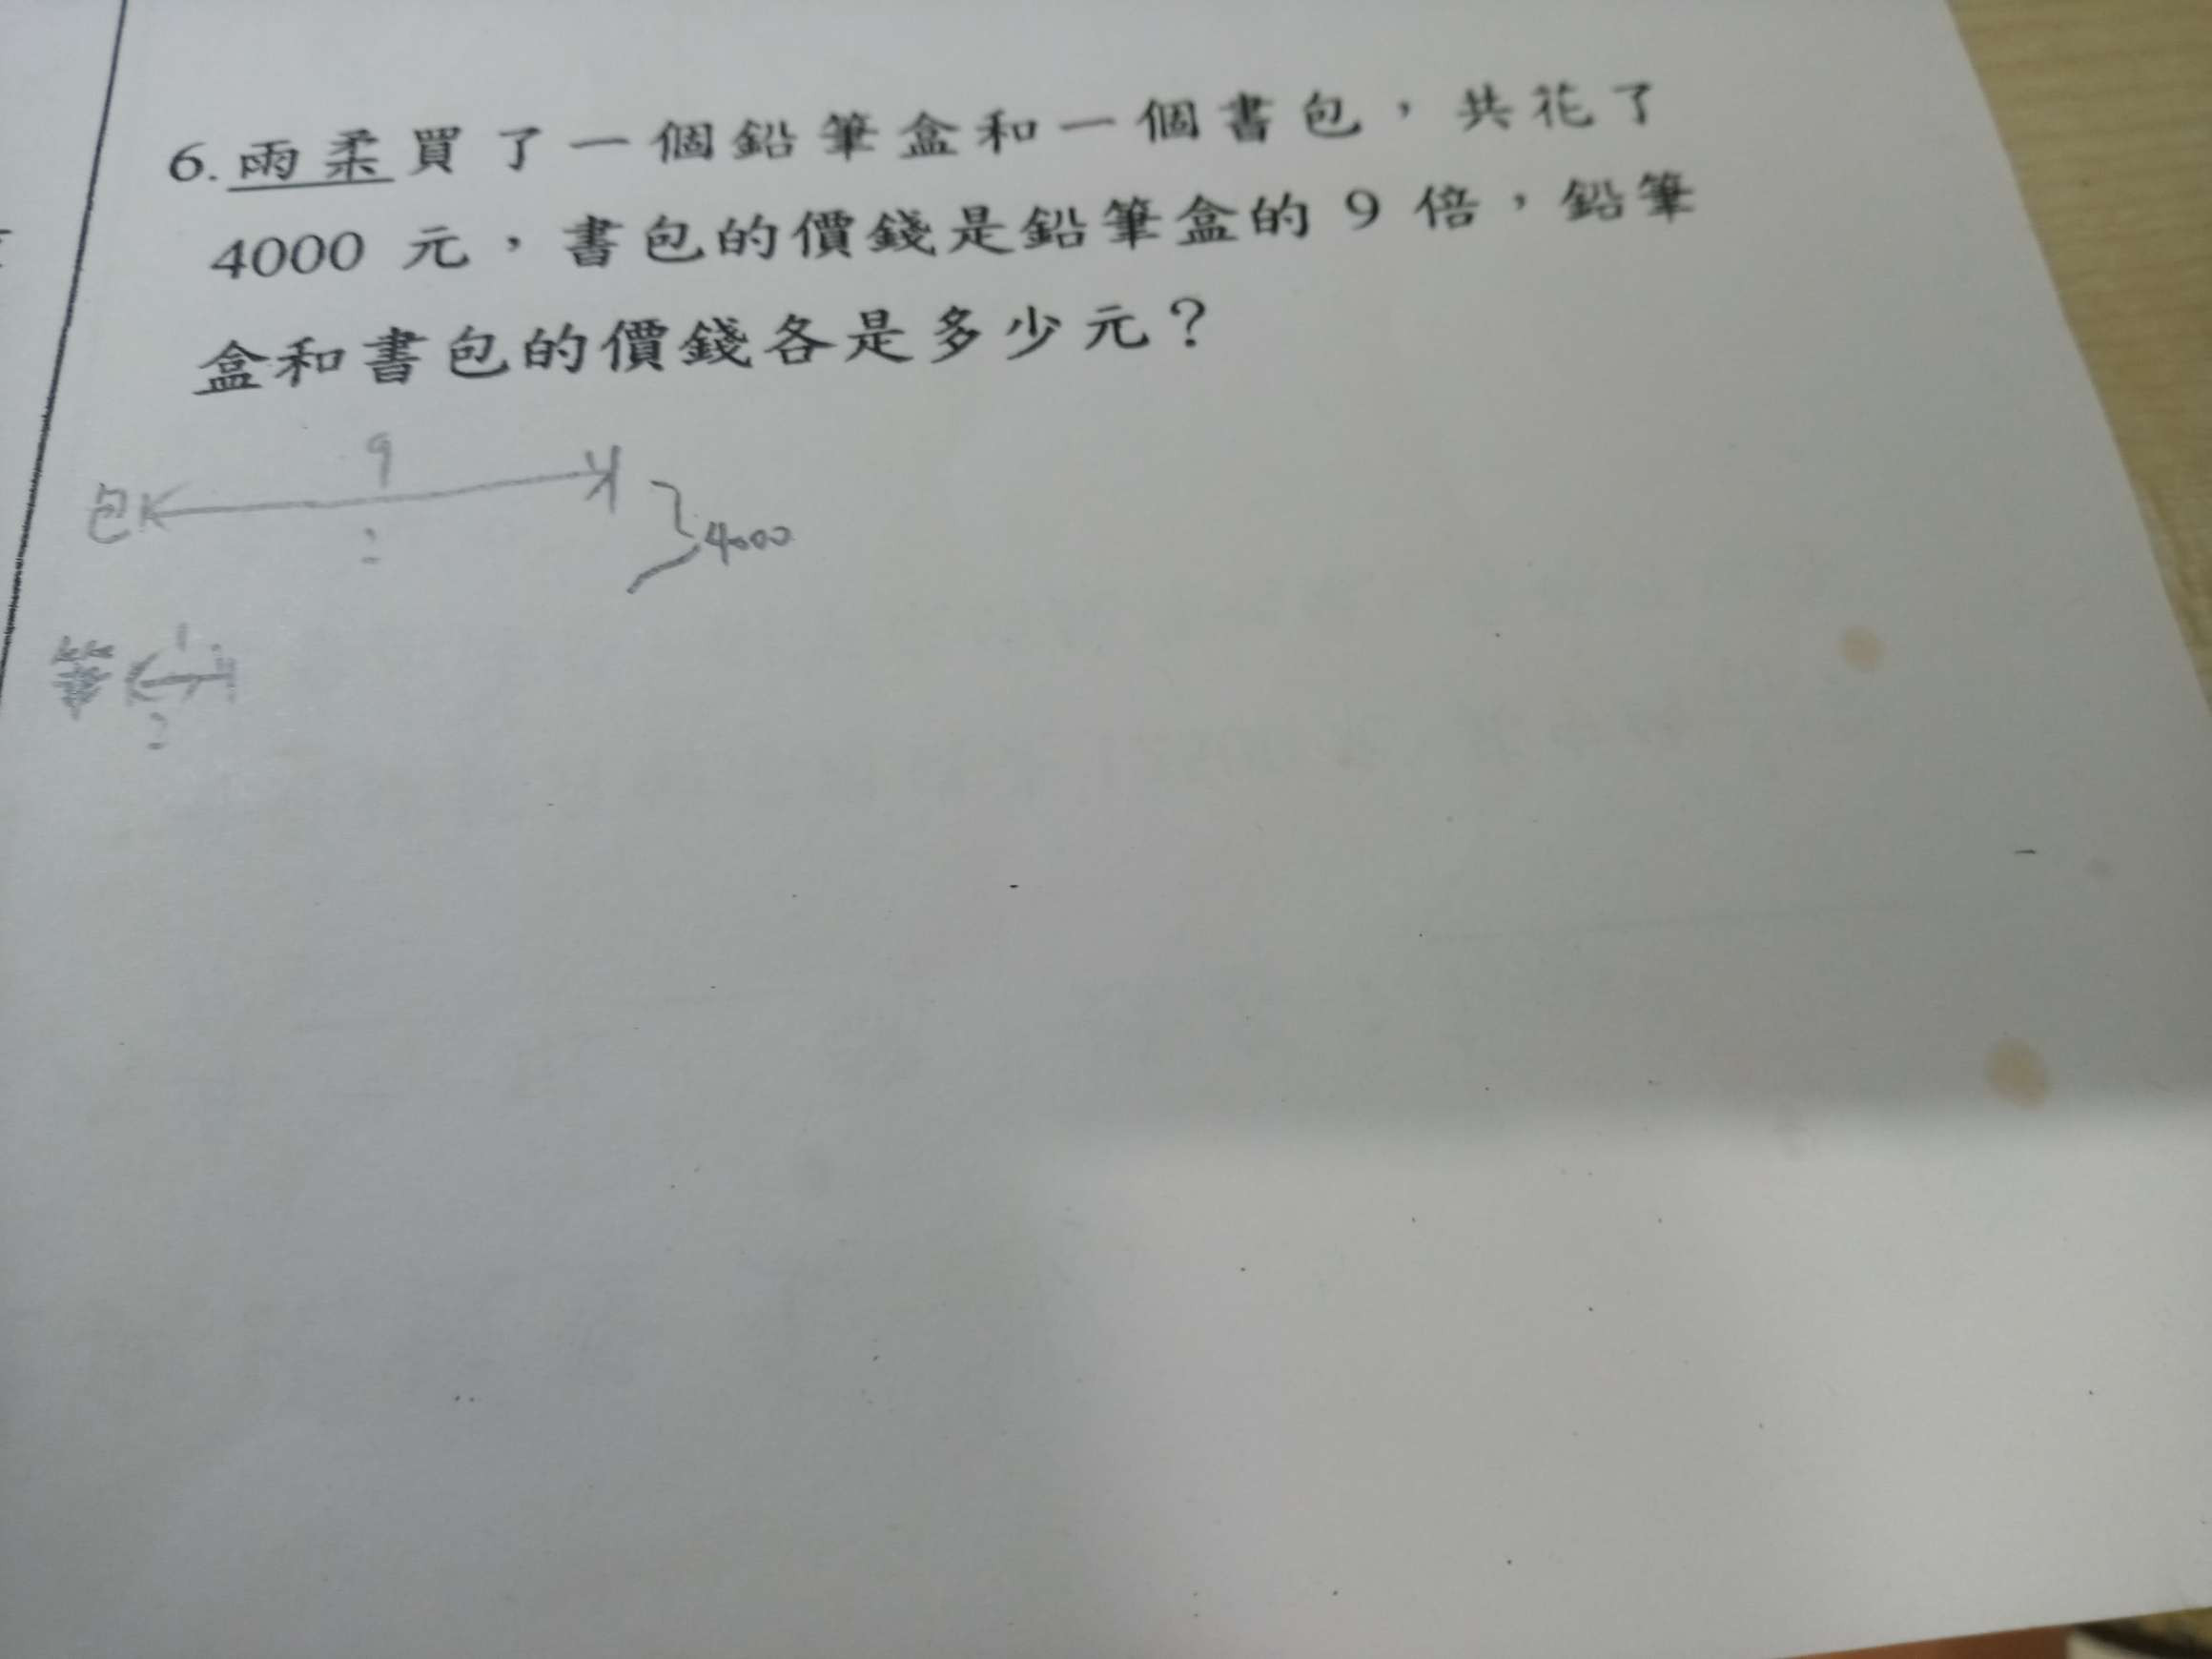 6. 雨柔買了一個鉛筆盒和一個書包，共花了
4000 元，書包的價錢是鉛筆盒的 9 倍，鉛筆
盒和書包的價錢各是多少元？
9
包
?
4000
1
筆
?